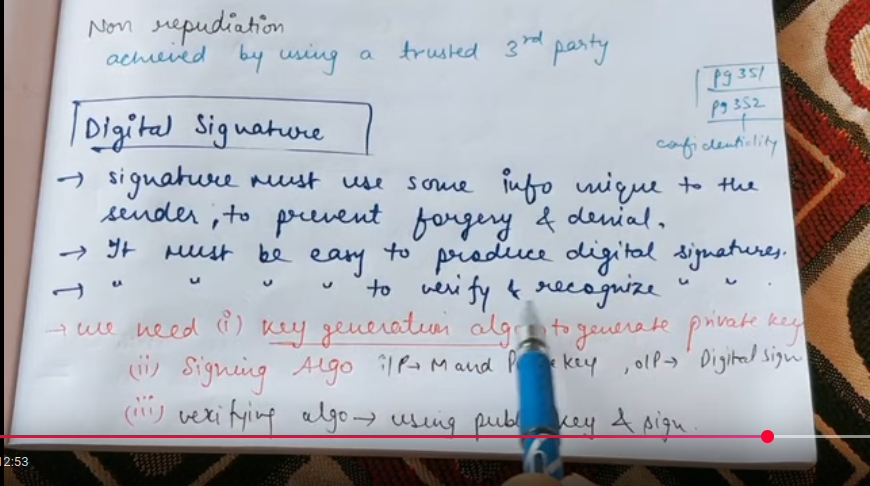 Non repudiation
achieved by using a trusted 3rd party
pg 351
pg 352
confidentiality
Digital Signature
→ signature must use some info unique to the
sender, to prevent forgery & denial.
→ It must be easy to produce digital signatures.
→ " " " " to verify & recognize " " .
→ we need (i) key generation algo to generate private key
(ii) Signing Algo i/P→ M and key, o/P→ Digital sign
(iii) verifying algo → using key & sign.
12:53